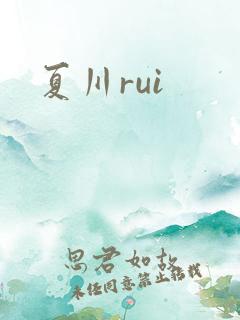 夏川rui
思君如故
未经同意禁止搭载